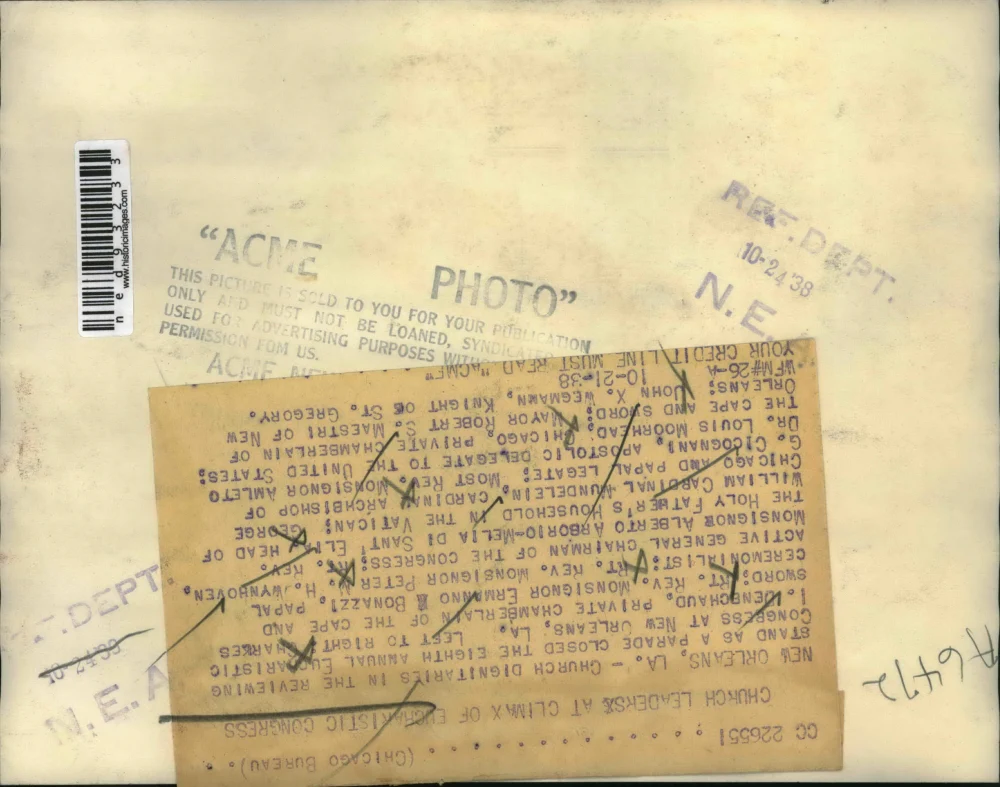 n e d 9 3 2 3 3
www.historicimages.com
"ACME PHOTO"
THIS PICTURE IS SOLD TO YOU FOR YOUR PUBLICATION
ONLY AND MUST NOT BE LOANED, SYNDICATED
USED FOR ADVERTISING PURPOSES
PERMISSION FOM US.
ACME
REF. DEPT.
10-24 38
N. E.
CC 226551 . . . . . . . . . . . . . . . (CHICAGO BUREAU) . .
CHURCH LEADERS AT CLIMAX OF EUCHARISTIC CONGRESS
NEW ORLEANS, LA. - CHURCH DIGNITARIES IN THE REVIEWING
STAND AS A PARADE CLOSED THE EIGHTH ANNUAL EUCHARISTIC
CONGRESS AT NEW ORLEANS, LA. LEFT TO RIGHT CHARLES
I. DENECHAUD, PRIVATE CHAMBERLAIN OF THE CAPE AND
SWORD; RT. REV. MONSIGNOR ERMANNO BONAZZI, PAPAL
CEREMONIALIST; RT. REV. MONSIGNOR PETER M. H. WYNHOVEN,
ACTIVE GENERAL CHAIRMAN OF THE CONGRESS; RT. REV.
MONSIGNOR ALBERTO ARBORIO-MELLA DI SANT' ELIA, HEAD OF
THE HOLY FATHER'S HOUSEHOLD IN THE VATICAN; GEORGE
WILLIAM CARDINAL MUNDELEIN, CARDINAL ARCHBISHOP OF
CHICAGO AND PAPAL LEGATE; MOST REV. MONSIGNOR AMLETO
G. CICOGNANI, APOSTOLIC DELEGATE TO THE UNITED STATES;
DR. LOUIS MOORHEAD, CHICAGO, PRIVATE CHAMBERLAIN OF
THE CAPE AND SWORD; MAYOR ROBERT S. MAESTRI OF NEW
ORLEANS; JOHN X. WEGMANN, KNIGHT OF ST. GREGORY.
WFM#26-A 10-21-38
YOUR CREDIT LINE MUST READ "ACME"
DEPT.
10-24 38
N. E. A
A6472